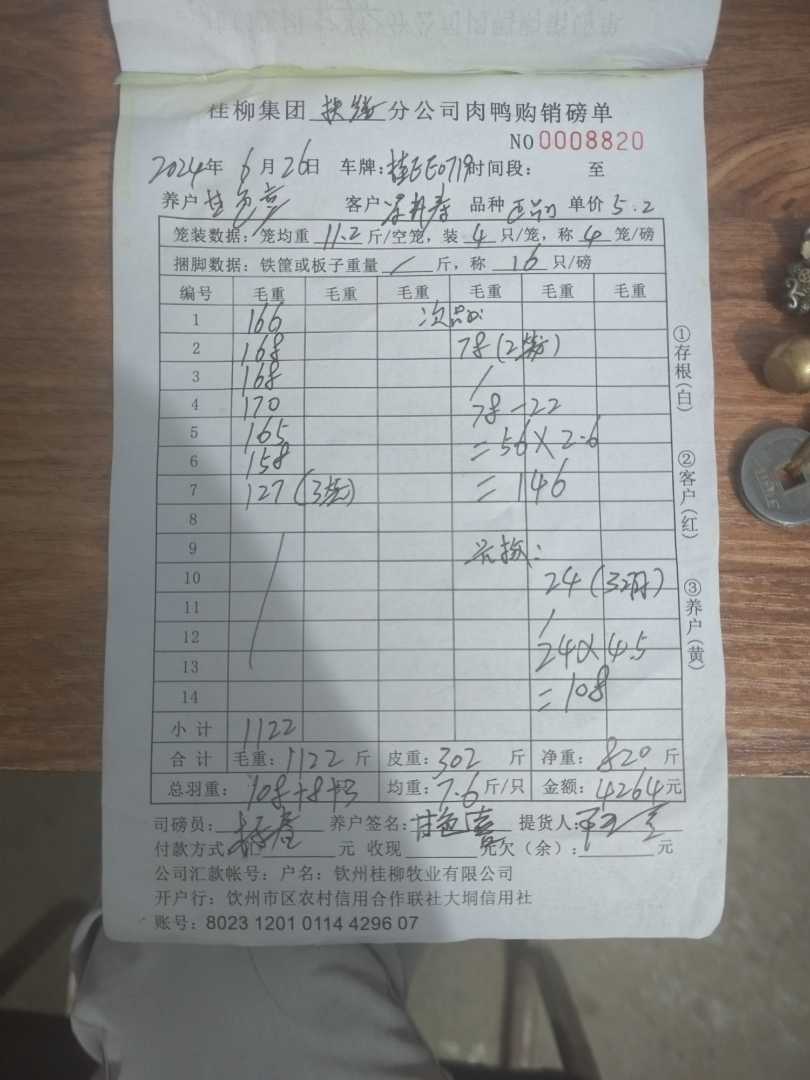 桂柳集团 分公司肉鸭购销磅单
NO 0008820
2024年 6月26日 车牌:桂EE0719 时间段: 至
养户 客户 品种 正品 单价 5.2
笼装数据:笼均重 11.2 斤/空笼,装 4 只/笼,称 4 笼/磅
捆脚数据:铁筐或板子重量 / 斤,称 16 只/磅
编号 毛重 毛重 毛重 毛重 毛重 毛重
1 166 次品:
2 168 78(2笼)
3 168
4 170 78-22
5 165 =56×2.6
6 158 =146
7 127(3笼)
8
9
10 24(3只)
11
12 24×4.5
13 =108
14
小计 1122
合计 毛重:1122斤 皮重:302斤 净重:820斤
总羽重:108+8+3 均重:7.6斤/只 金额:4264元
司磅员: 养户签名: 提货人:
付款方式:汇 元 收现 元欠(余): 元
公司汇款帐号:户名:钦州桂柳牧业有限公司
开户行:饮州市区农村信用合作联社大垌信用社
账号:8023 1201 0114 4296 07
①存根(白)
②客户(红)
③养户(黄)